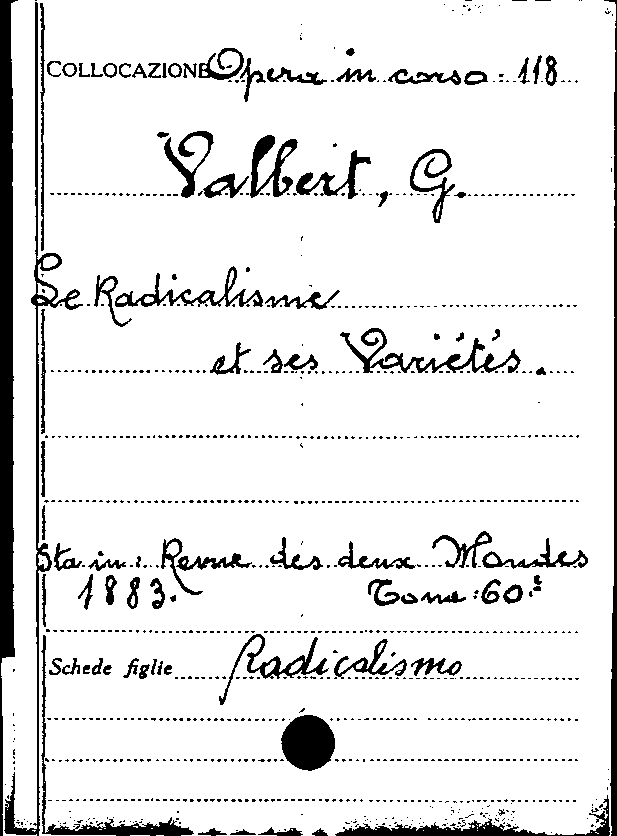 COLLOCAZIONE Opera in corso: 118
Valbert, G.
Le Radicalisme
et ses Variétés.
Sta in: Revue des deux Mondes
1883. Tome: 60.e
Schede figlie Radicalismo